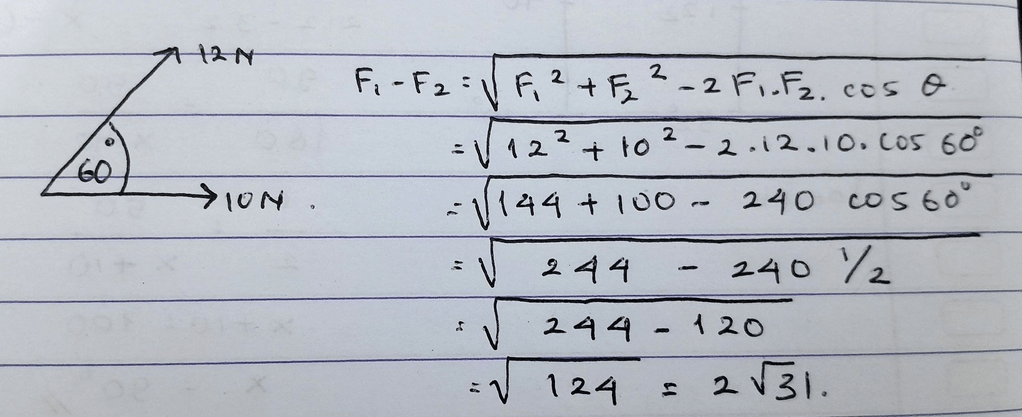 12 N
60°
10 N.
F₁ - F₂ = √ F₁² + F₂² - 2 F₁.F₂. cos θ
= √ 12² + 10² - 2.12.10. cos 60°
= √ 144 + 100 - 240 cos 60°
= √ 244 - 240 1/2
= √ 244 - 120
= √ 124 = 2 √31.